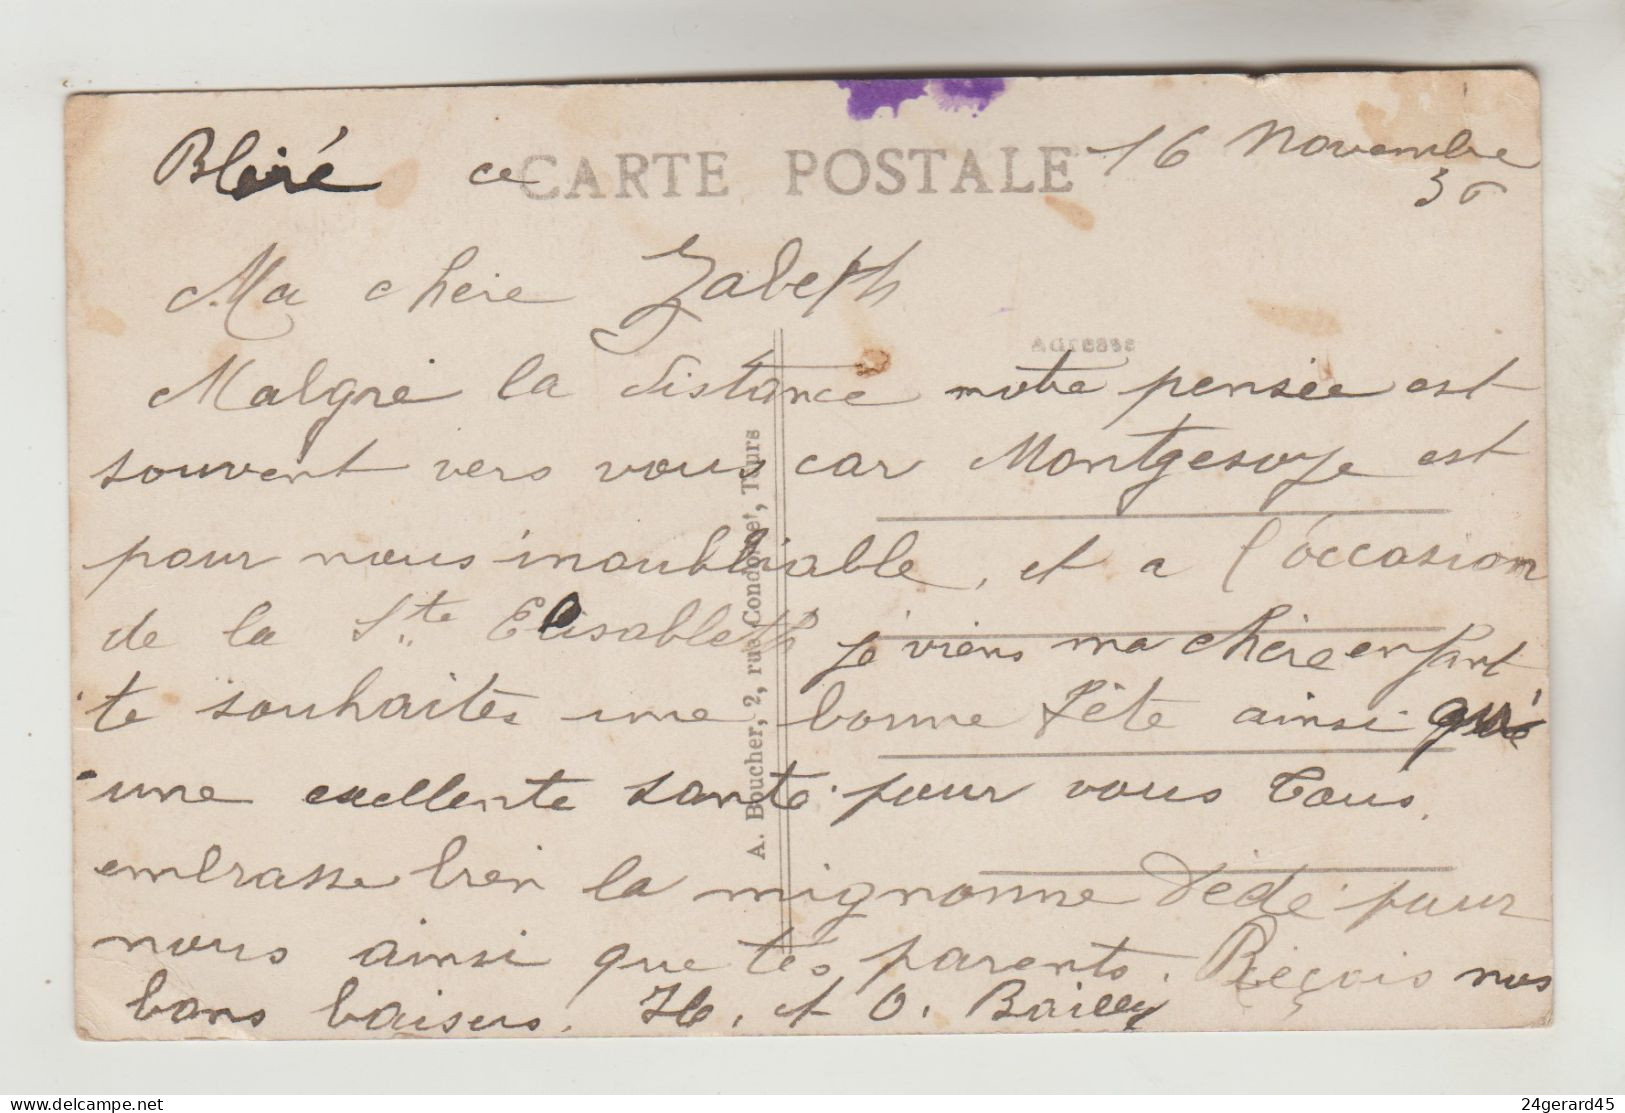 CARTE POSTALE
Bléré ce 16 Novembre
36
Ma chère Zabeth
Adresse
Malgré la distance notre pensée est
souvent vers vous car Montgesoye est
pour nous inoubliable, et a l'óccasion
de la Ste Elisableth je viens ma chère enfant
te souhaites une bonne fête ainsi que
une excellente santé pour vous Tous.
embrasse bien la mignonne Dédé pour
nous ainsi que tes parents. Reçois nos
bons baisers. H. et O. Bailly
A. Boucher, 2, rue Condorcet, Tours
24gerard45